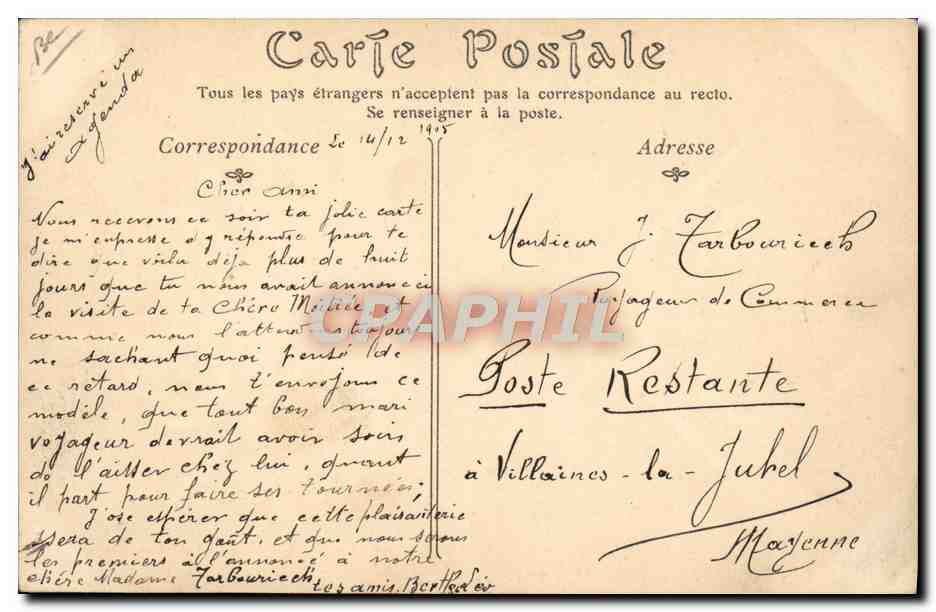 Carte Postale
Tous les pays étrangers n'acceptent pas la correspondance au recto.
Se renseigner à la poste.
J'ai reservé un
Agenda
Correspondance Le 14/12 1905
Cher ami
Nous recevons ce soir ta jolie carte
je m'enpresse d'y répondre pour te
dire que voilà déja plus de huit
jours que tu nous avait annoncé ici
la visite de ta Chère Moitiée, et
comme nous l'attendons toujours
ne sachant quoi pensé de
ce retard, nous t'envoyons ce
modèle, que tout bon mari
voyageur devrait avoir soin
de l'aisser chez lui, quant
il part pour faire ses tournées;
J'ose espérer que cette plaisanterie
sera de ton goût, et que nous serons
les premiers à l'annoncé à notre
chère Madame Tarbouriech
Les amis
Adresse
Monsieur J. Tarbouriech
Voyageur de Commerce
Poste Restante
à Villaines-la-Juhel
Mayenne
CPAPHIL